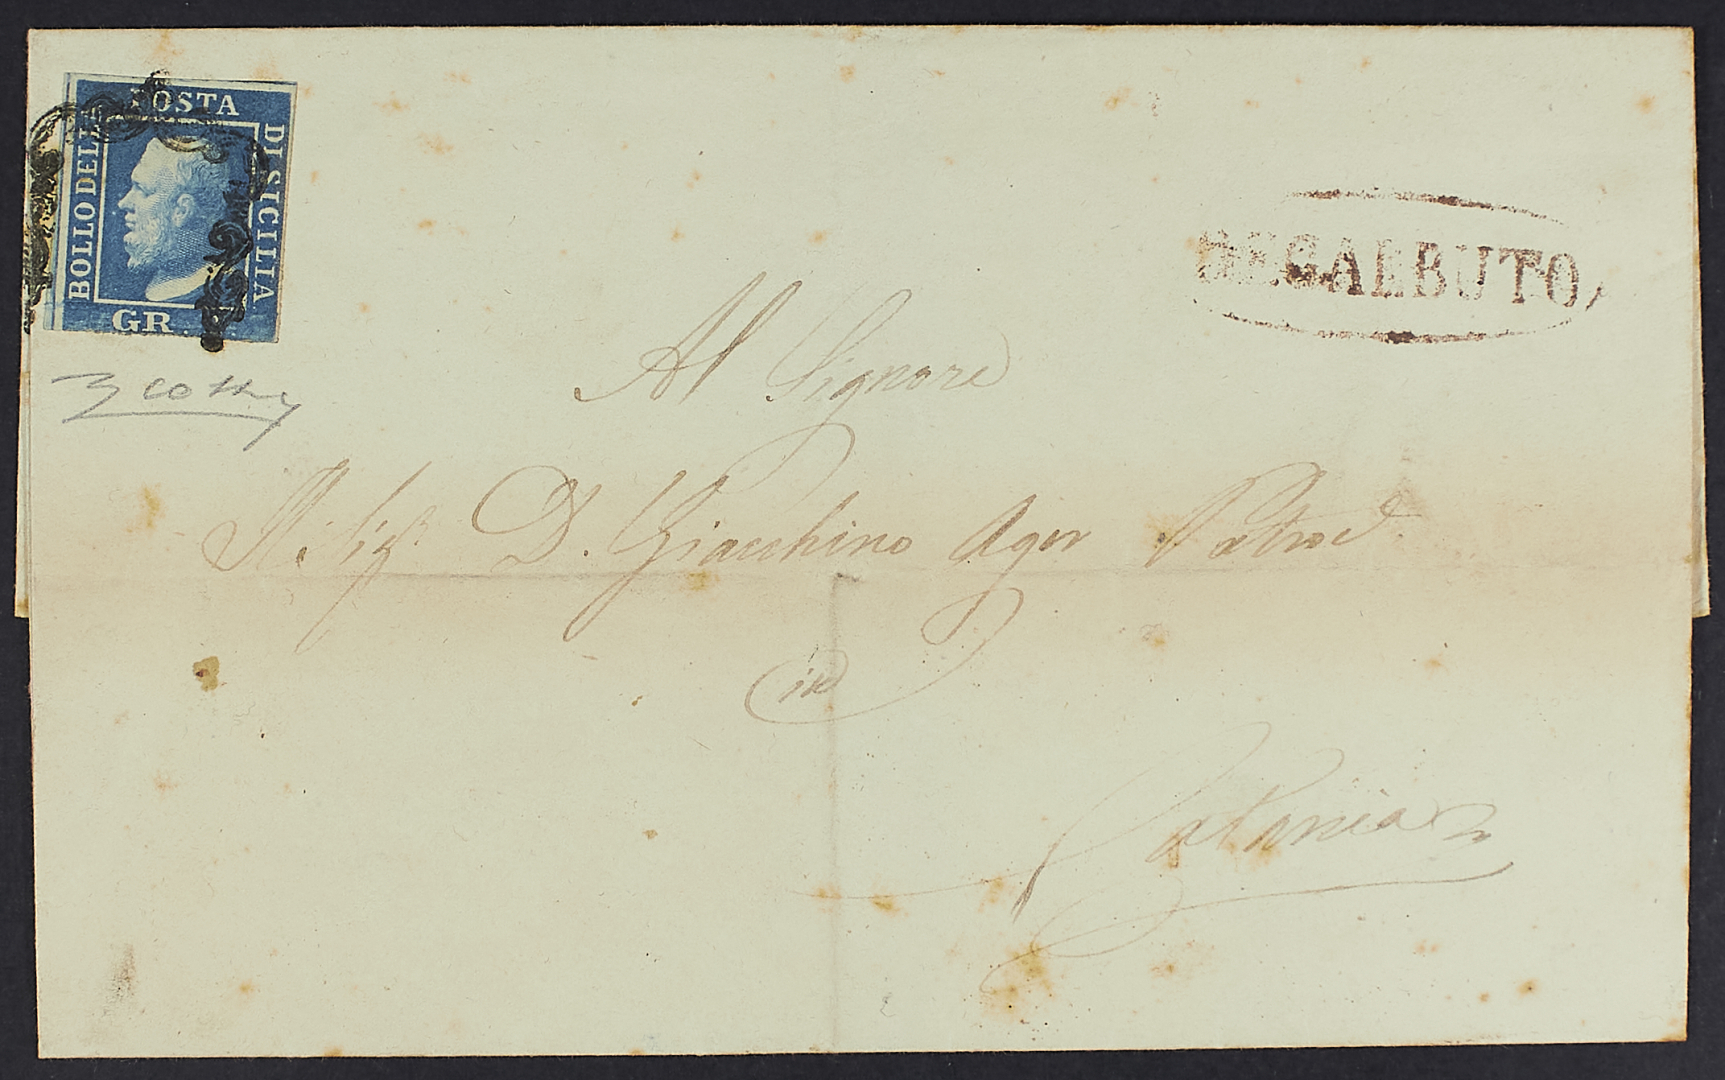 BOLLO DELLA
POSTA
DI SICILIA
GR
REGALBUTO
Al Signore
Il Sigr. D. Giacchino Ager
in
Catania